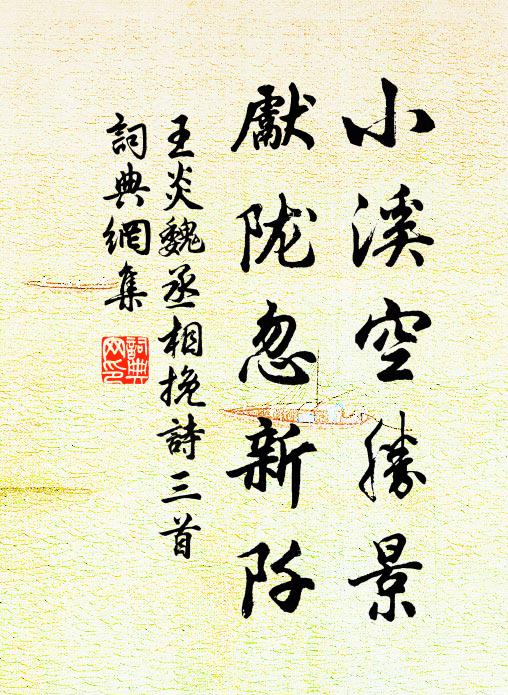 小溪空勝景
獻陇忽新阡
王炎魏丞相挽詩三首
詞典網集
詞典网印